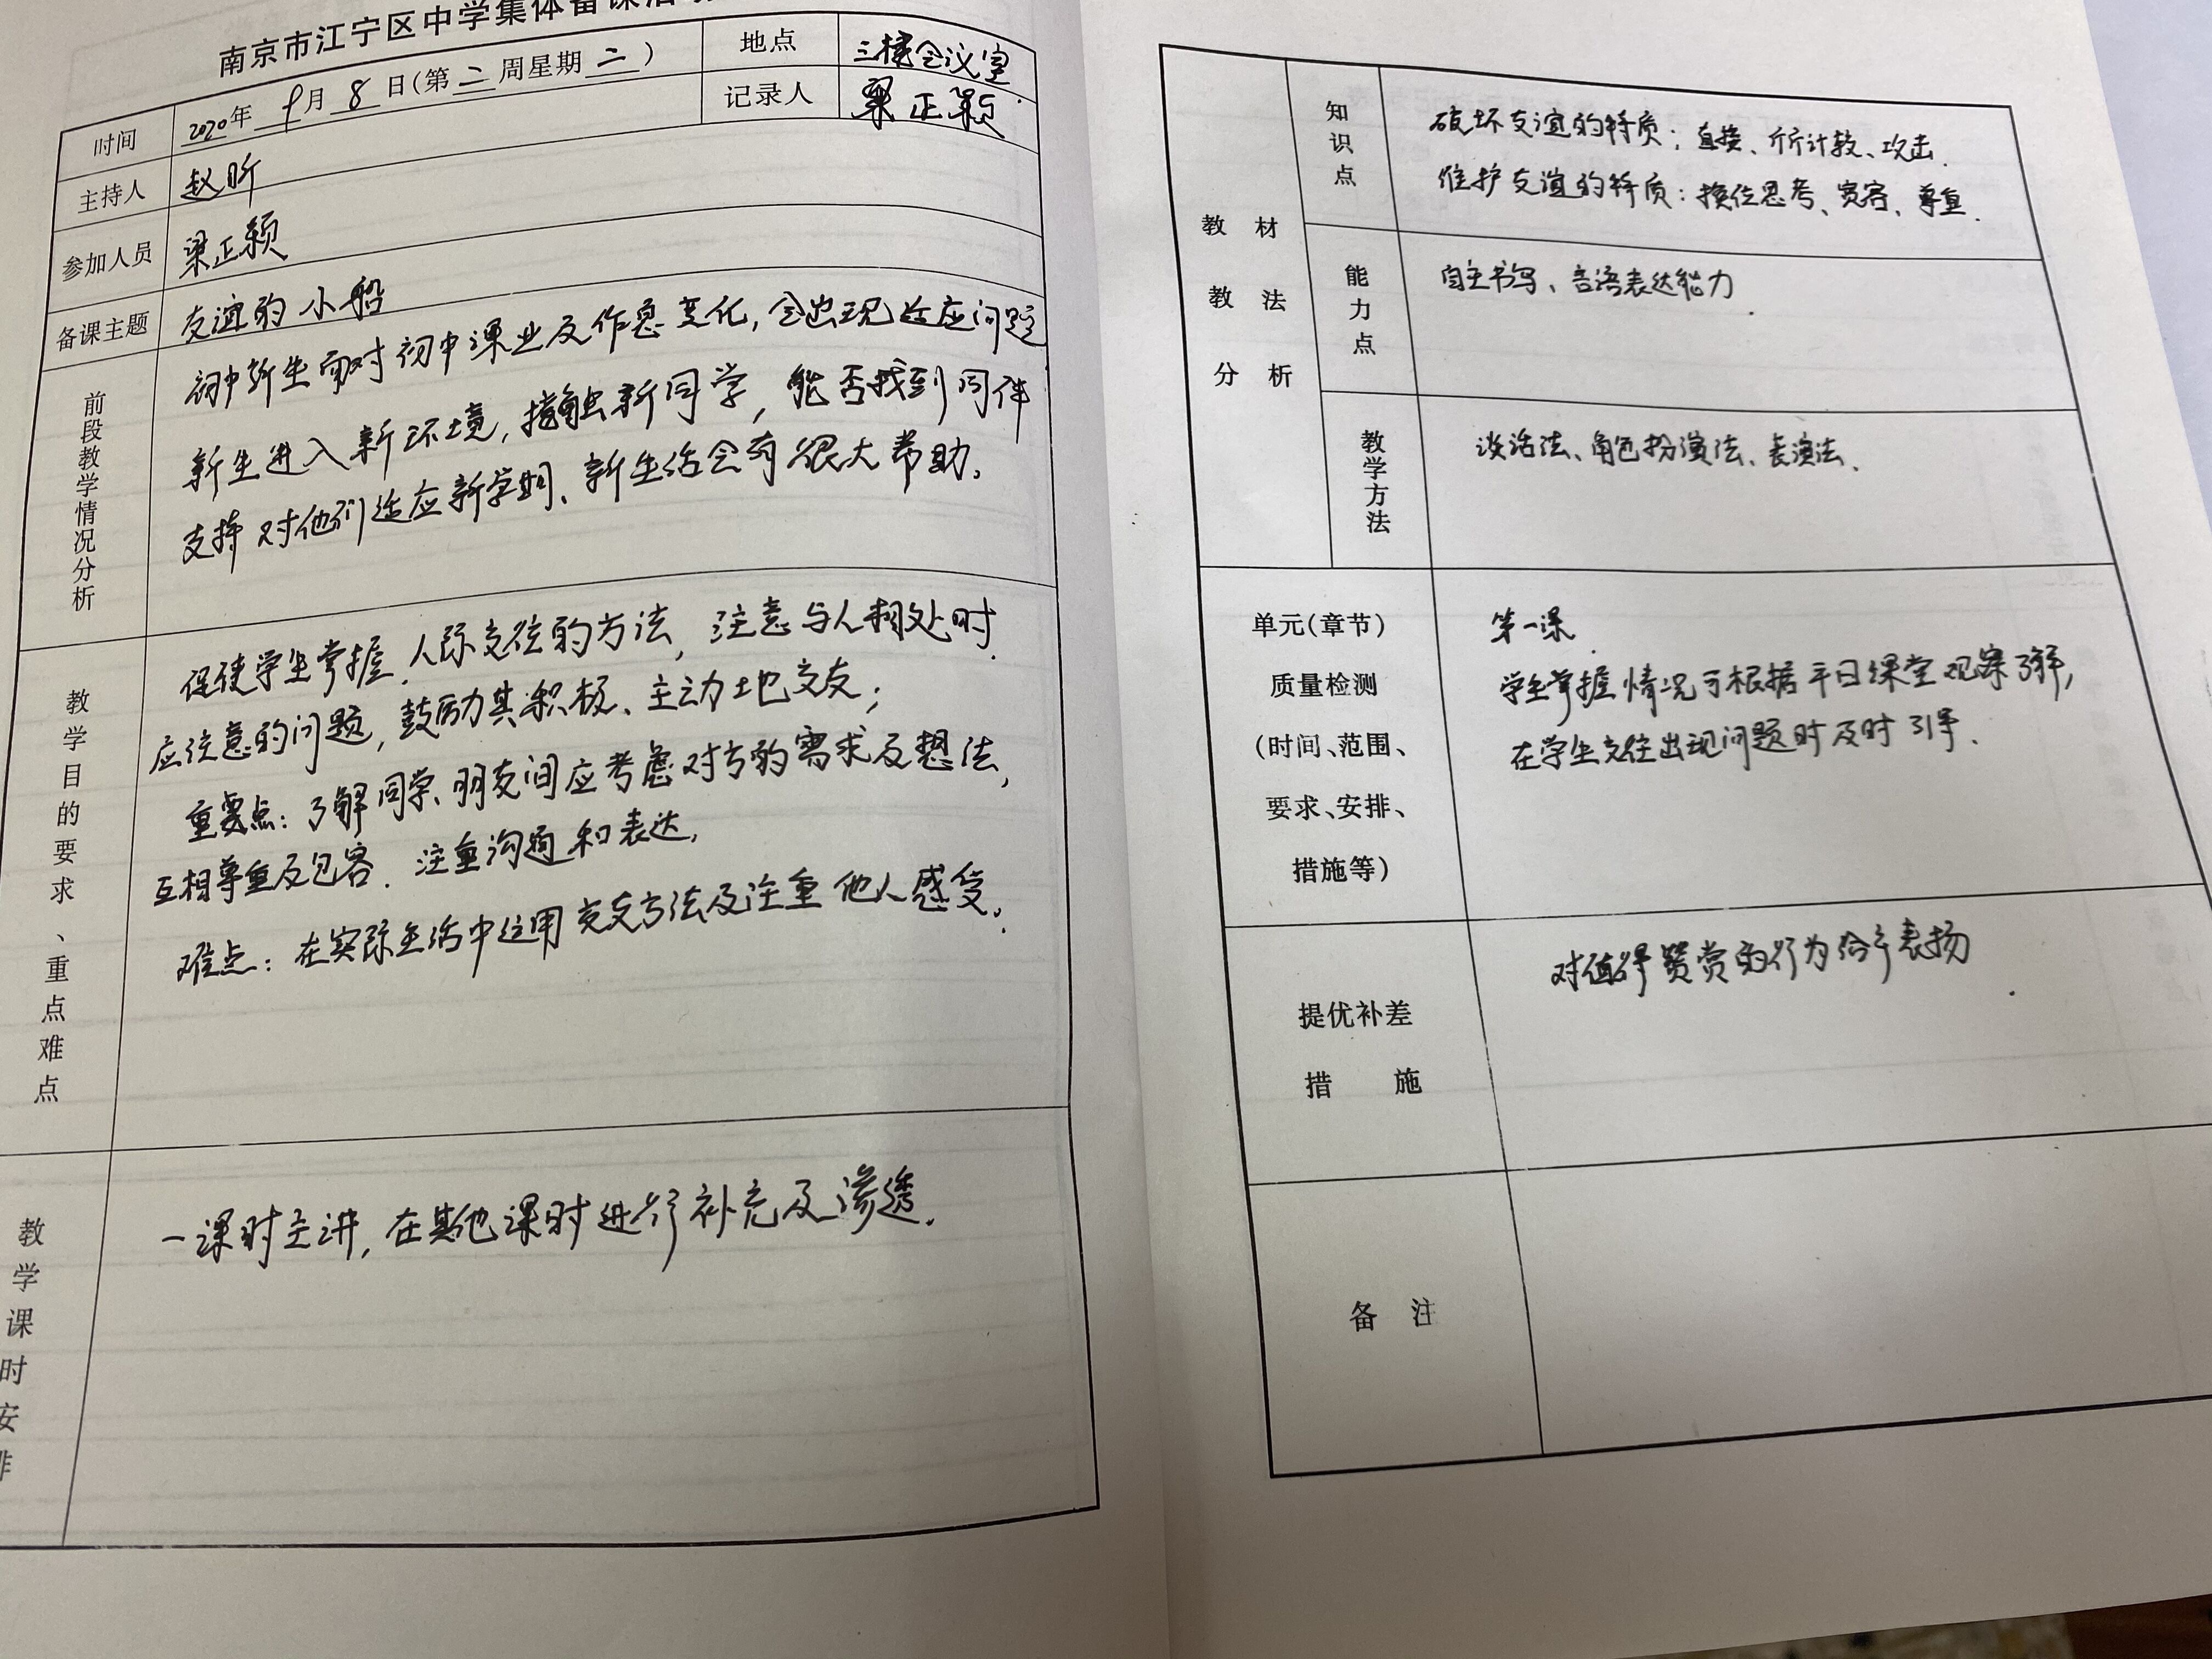 南京市江宁区中学集体备课活
时间 2020年 9月 8日(第二周星期二) 地点 三楼会议室
主持人 赵昕 记录人 梁正颖
参加人员 梁正颖
备课主题 友谊的小船
前段教学情况分析
初中新生面对初中课业及作息变化,会出现适应问题
新生进入新环境,接触新同学,能否找到同伴
支持对他们适应新学期、新生活会有很大帮助。
教学目的要求、重点难点
促使学生掌握人际交往的方法,注意与人相处时
应注意的问题,鼓励其积极、主动地交友;
重要点:了解同学、朋友间应考虑对方的需求及想法,
互相尊重及包容.注重沟通和表达,
难点:在实际生活中运用交友方法及注重他人感受.
教学课时安排
一课时主讲,在其他课时进行补充及渗透.
教材教法分析
知识点
破坏友谊的特质:自接、斤斤计较、攻击.
维护友谊的特质:换位思考、宽容、尊重.
能力点
自主书写、言语表达能力
教学方法
谈话法、角色扮演法、表演法.
单元(章节)
质量检测
(时间、范围、
要求、安排、
措施等)
第一课
学生掌握情况可根据平日课堂观察了解,
在学生交往出现问题时及时引导.
提优补差
措施
对值得赞赏的行为给予表扬
备注